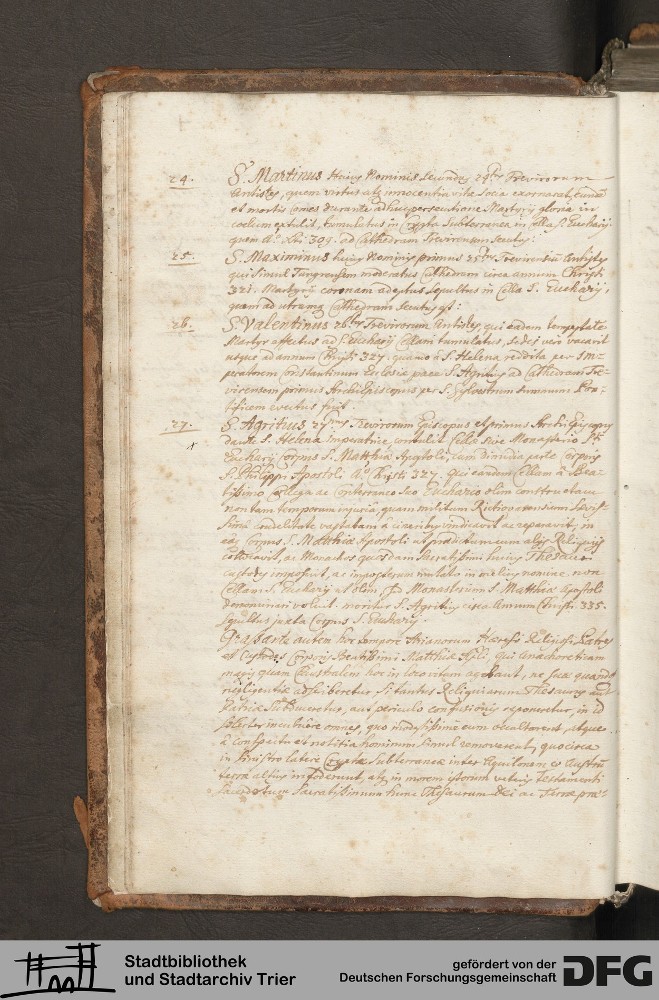 24. S. Martinus Huius Nominis secundus 24tus Trevirorum
Antistes, quem virtus atq innocentia vitae socia exornarat, eundem
et mortis comes durante adhuc persecutione Martyrij gloria in
coelum extulit, tumulatus in Crypta subterranea in cella S. Eucharij
quem Ao. Xti 309. ad Cathedram Trevirensem
25. S. Maximinus huius Nominis primus 25tus Trevirensium Antistes
qui simul Tungrensem moderatus Cathedram circa annum Christi
321. Martyrij coronam adeptus sepultus in Cella S. Eucharij,
quem ad utramq Cathedram secutus est:
26. S. Valentinus 26tus Trevirorum Antistes, qui eadem tempestate
Martyr effectus ad S. Eucharij Cellam tumulatus, sedes vero vacavit
usque ad annum Christi 327. quando à S. Helena reddita per Im=
peratorem Constantinum Ecclesiae pace S. Agritius ad Cathedram Tre=
virensem primus Archiepiscopus per S. Sylvestrum summum Pon=
tificem evectus fuit.
27. S. Agritius 27mus Trevirorum Episcopus et primus Archiepiscopus
dante S. Helena Imperatrice, contulit Cellae sive Monasterio Sti
Eucharij corpus S. Matthiae Apostoli, cum dimidia parte Corporis
S. Philippi Apostoli Ao Christi 327. qui eandem Cellam à Bea=
tissimo collega ac conterraneo suo Euchario olim constructam
non tam temporum injuria, quam militum Rictiovarus
crudelitate vastatam à cineribus vindicavit ac reparavit, in
eaq Corpus S. Matthiae Apostoli ut praedictum cum alijs Reliquijs
collocavit, ac Monachos quosdam Sacratissimi huius Thesauri
custodes imposuit, ac imposterum mutato in melius nomine, non
Cellam S. Eucharij ut olim, sed Monasterium S. Matthiae Apostoli
denominari voluit. moritur S. Agritius circa Annum Christi 335.
sepultus juxta Corpus S. Eucharij.
Grassante autem hoc tempore Arianorum Haeresi Religiosi Patres
et Custodes Corporis Beatissimi Matthiae Apli, qui Anachoreticam
magis quam Claustralem hoc in loco vitam agebant, ne suae quandoq
negligentiae adscriberetur, si tantus Reliquiarum Thesaurus aut
Patriae subduceretur, aut periculo confusionis exponeretur, in id
solerter incubuere omnes, quo modestissime eum occultarent, atque
à conspectu et notitia hominum simul removerent, quocirca
in sinistro latere Cryptae subterraneae inter Aquilonem et Austrum
terra altius infoderunt, atq in morem istorum veteris Testamenti
Sacerdotum Sacratissimum hunc Thesaurum Dei ac Terrae prae=
Stadtbibliothek
und Stadtarchiv Trier
gefördert von der
Deutschen Forschungsgemeinschaft
DFG